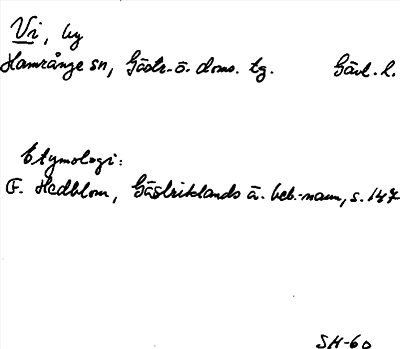 Vi, by
Hamrånge sn, Gästr. ö. doms. tg. Gävl. l.
Etymologi:
F. Hedblom, Gästriklands ä. beb.-namn, s. 147
SH-60